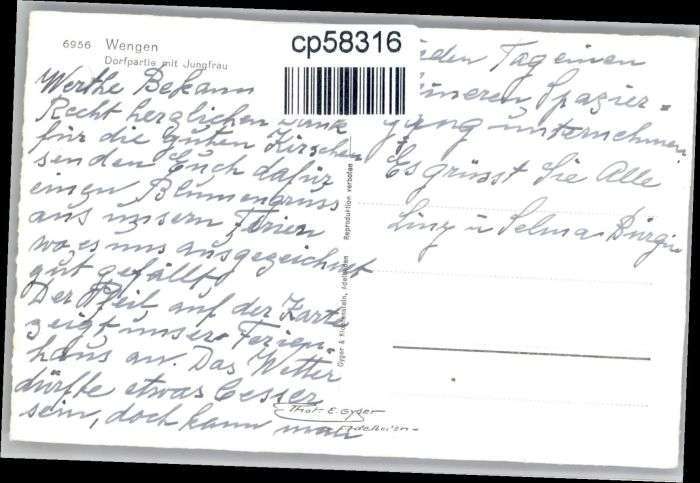 6956 Wengen
Dorfpartie mit Jungfrau
cp58316
Werthe Bekann
Recht herzlichen Dank
für die guten Kirschen
senden Euch dafür
einen Blumengruss
aus unsern Ferien
wo es uns ausgezeichnet
gut gefällt.
Der Pfeil auf der Karte
zeigt unser Ferien-
haus an. Das Wetter
dürfte etwas besser
sein, doch kann man
jeden Tag einen
kleineren Spazier-
gang unternehmen.
Es grüsst Sie Alle
Liny u Selma Bürgin
Reproduktion verboten
Gyger & Klopfenstein, Adelboden
Phot. E. Gyger
Adelboden